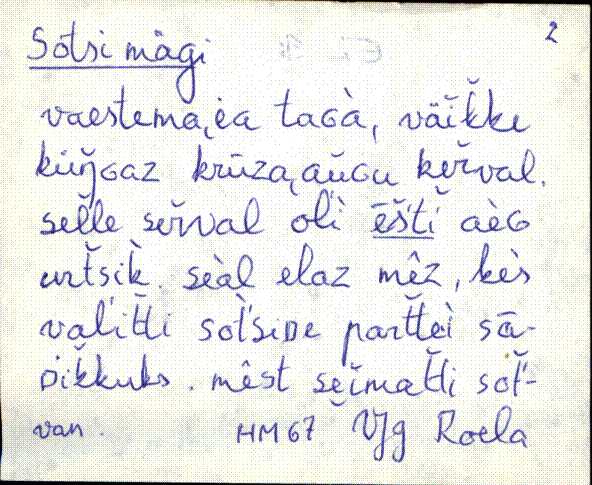 2
Sòtsi mägi
vaestema, èa taGà, väĭk̆ke
küŋ̆Gaz krūza, aŭGu keř̆val.
sel̆le sèř̆val oĺ̀i ēš̆t́ì aèG
urt̆sik̀. sèàl elaz mêz, kès
vaĺit̆ti sòt́siDe part̆tèi sā-
Dik̆kuks. mêst sèĭmat̆ti sòt̆́-
van. HM 67 VJg Roela